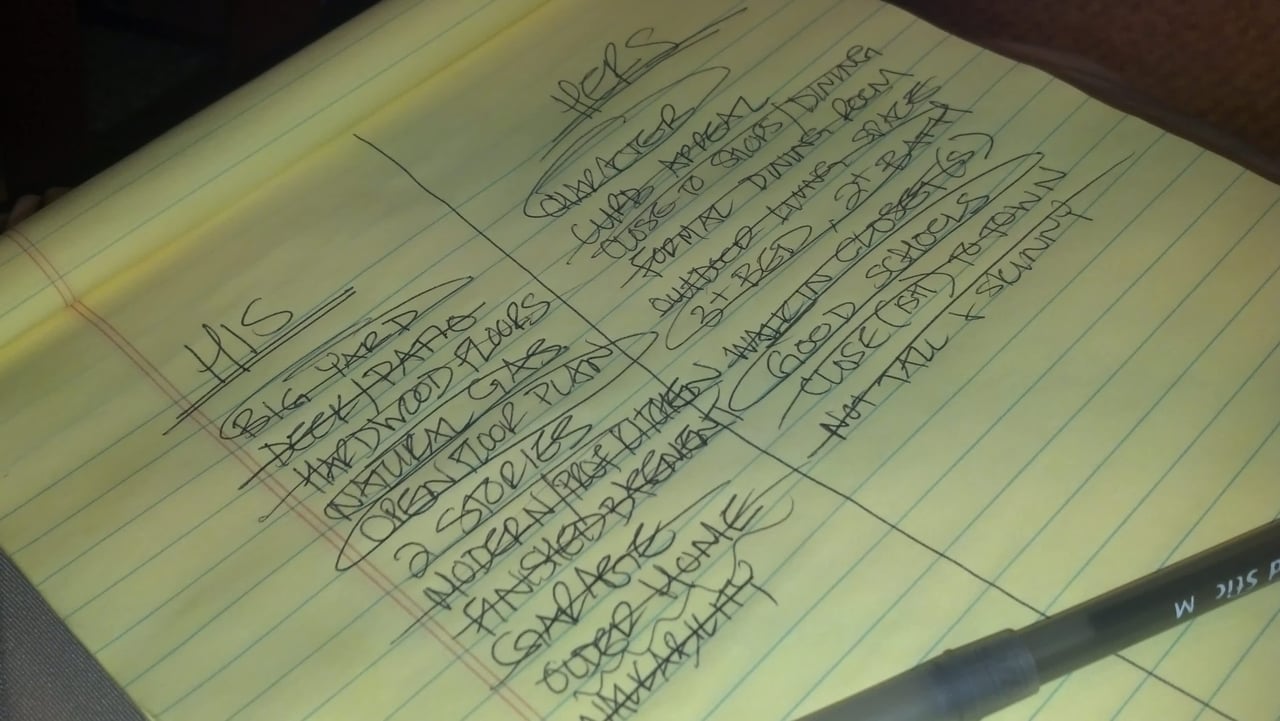 HIS
BIG YARD
DECK/PATIO
HARDWOOD FLOORS
NATURAL GAS
OPEN FLOOR PLAN
2 STORIES
MODERN/PROF KITCHEN
FINISHED BASEMENT
GARAGE
OLDER HOME
WALKABILITY
HERS
CHARACTER
CURB APPEAL
CLOSE TO SHOPS/DINING
FORMAL DINING ROOM
OUTDOOR LIVING SPACE
3+ BED, 2+ BATH
WALK IN CLOSET(S)
GOOD SCHOOLS
CLOSE(ISH) TO TOWN
NOT TALL & SKINNY
Stic M